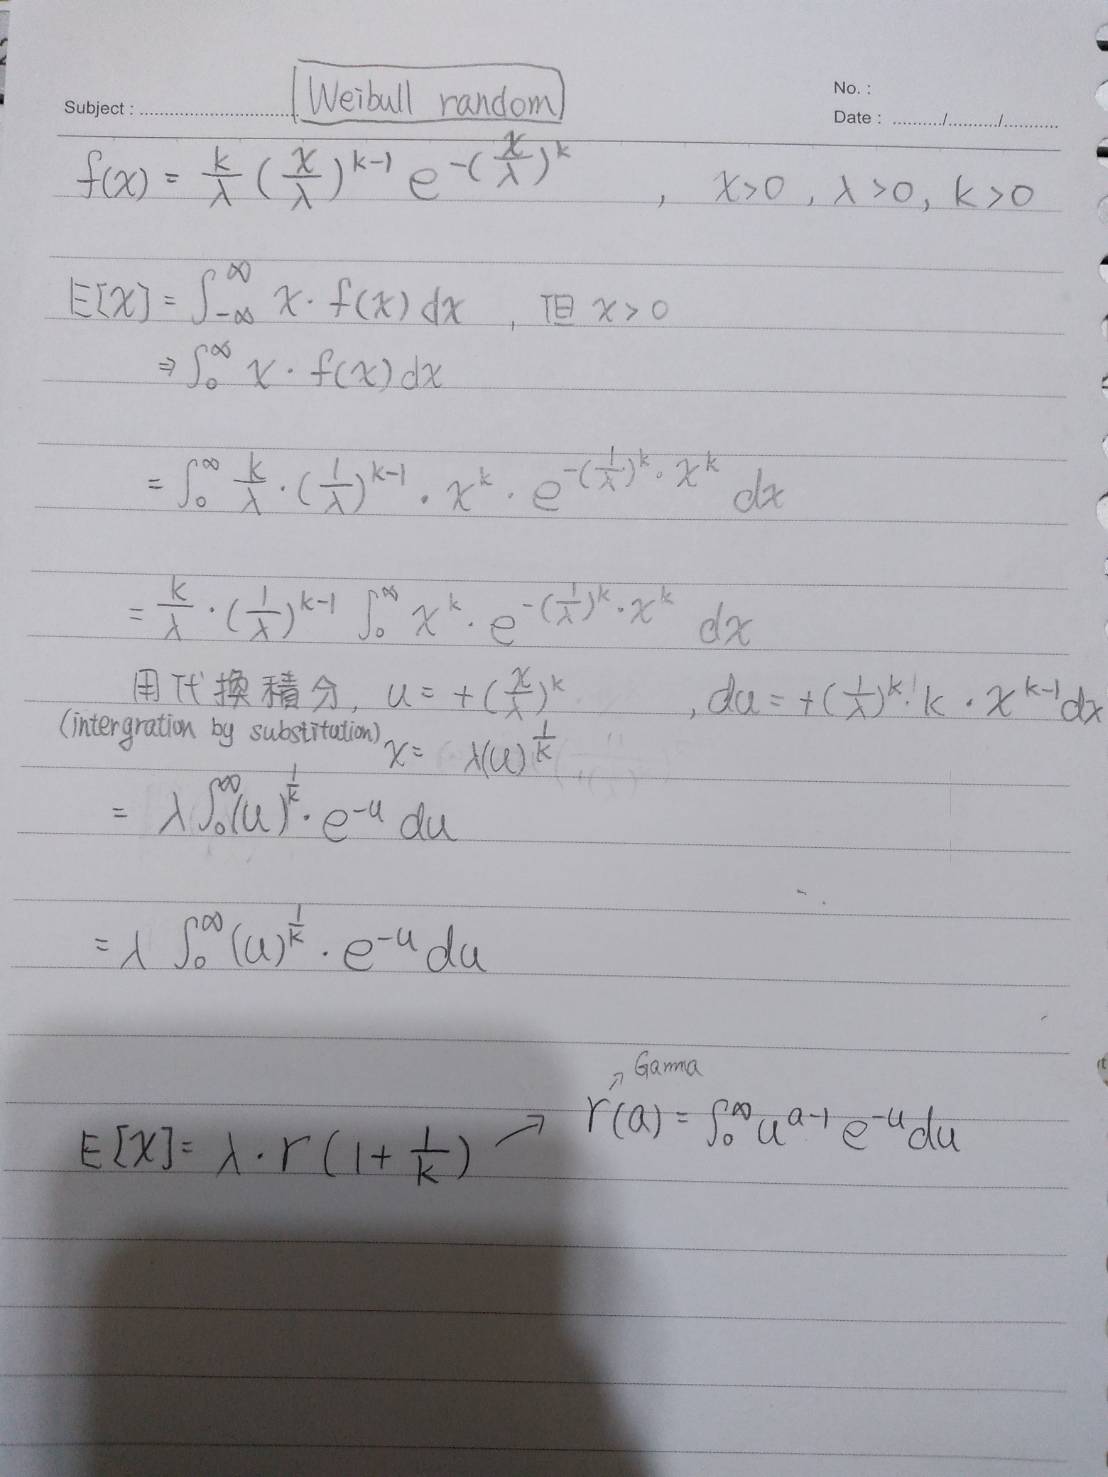 Weibull random
No. :
Subject : ........................
Date : ........../........../..........
f(x) = k/λ (x/λ)^(k-1) e^(-(x/λ)^k) , x>0 , λ>0, k>0
E[X] = ∫_{-∞}^{∞} x · f(x) dx , 但 x>0
⇒ ∫_0^∞ x · f(x) dx
= ∫_0^∞ k/λ · (1/λ)^(k-1) · x^k · e^(-(1/λ)^k · x^k) dx
= k/λ · (1/λ)^(k-1) ∫_0^∞ x^k · e^(-(1/λ)^k · x^k) dx
用代換積分, u = +(x/λ)^k , du = +(1/λ)^k · k · x^(k-1) dx
(intergration by substitution) x = λ(u)^(1/k)
= λ ∫_0^∞ (u)^(1/k) · e^(-u) du
= λ ∫_0^∞ (u)^(1/k) · e^(-u) du
↗ Gamma
E[X] = λ · r(1 + 1/k) → r(a) = ∫_0^∞ u^(a-1) e^(-u) du